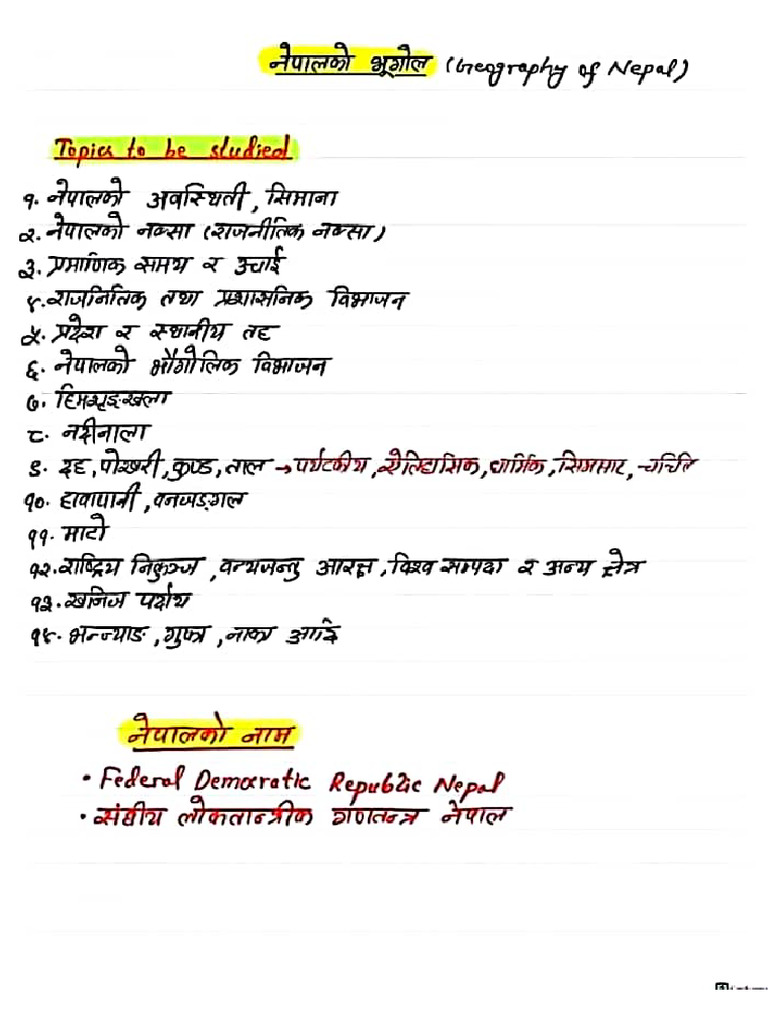 नेपालको भूगोल (Geography of Nepal)
Topics to be studied
१. नेपालको अवस्थिती, सिमाना
२. नेपालको नक्सा (राजनीतिक नक्सा)
३. प्रमाणिक समय र उचाई
४. राजनितिक तथा प्रशासनिक विभाजन
५. प्रदेश र स्थानीय तह
६. नेपालको भौगोलिक विभाजन
७. हिमशृङ्खला
८. नदीनाला
९. दह, पोखरी, कुण्ड, ताल → पर्यटकीय, ऐतिहासिक, धार्मिक, सिमसार, चर्चित
१०. हावापानी, वनजङ्गल
११. माटो
१२. राष्ट्रिय निकुञ्ज, वन्यजन्तु आरक्ष, विश्व सम्पदा र अन्य क्षेत्र
१३. खनिज पर्दाथ
१४. भन्ज्याङ, गुफा, नाका आदि
नेपालको नाम
• Federal Democratic Republic Nepal
• संघीय लोकतान्त्रीक गणतन्त्र नेपाल